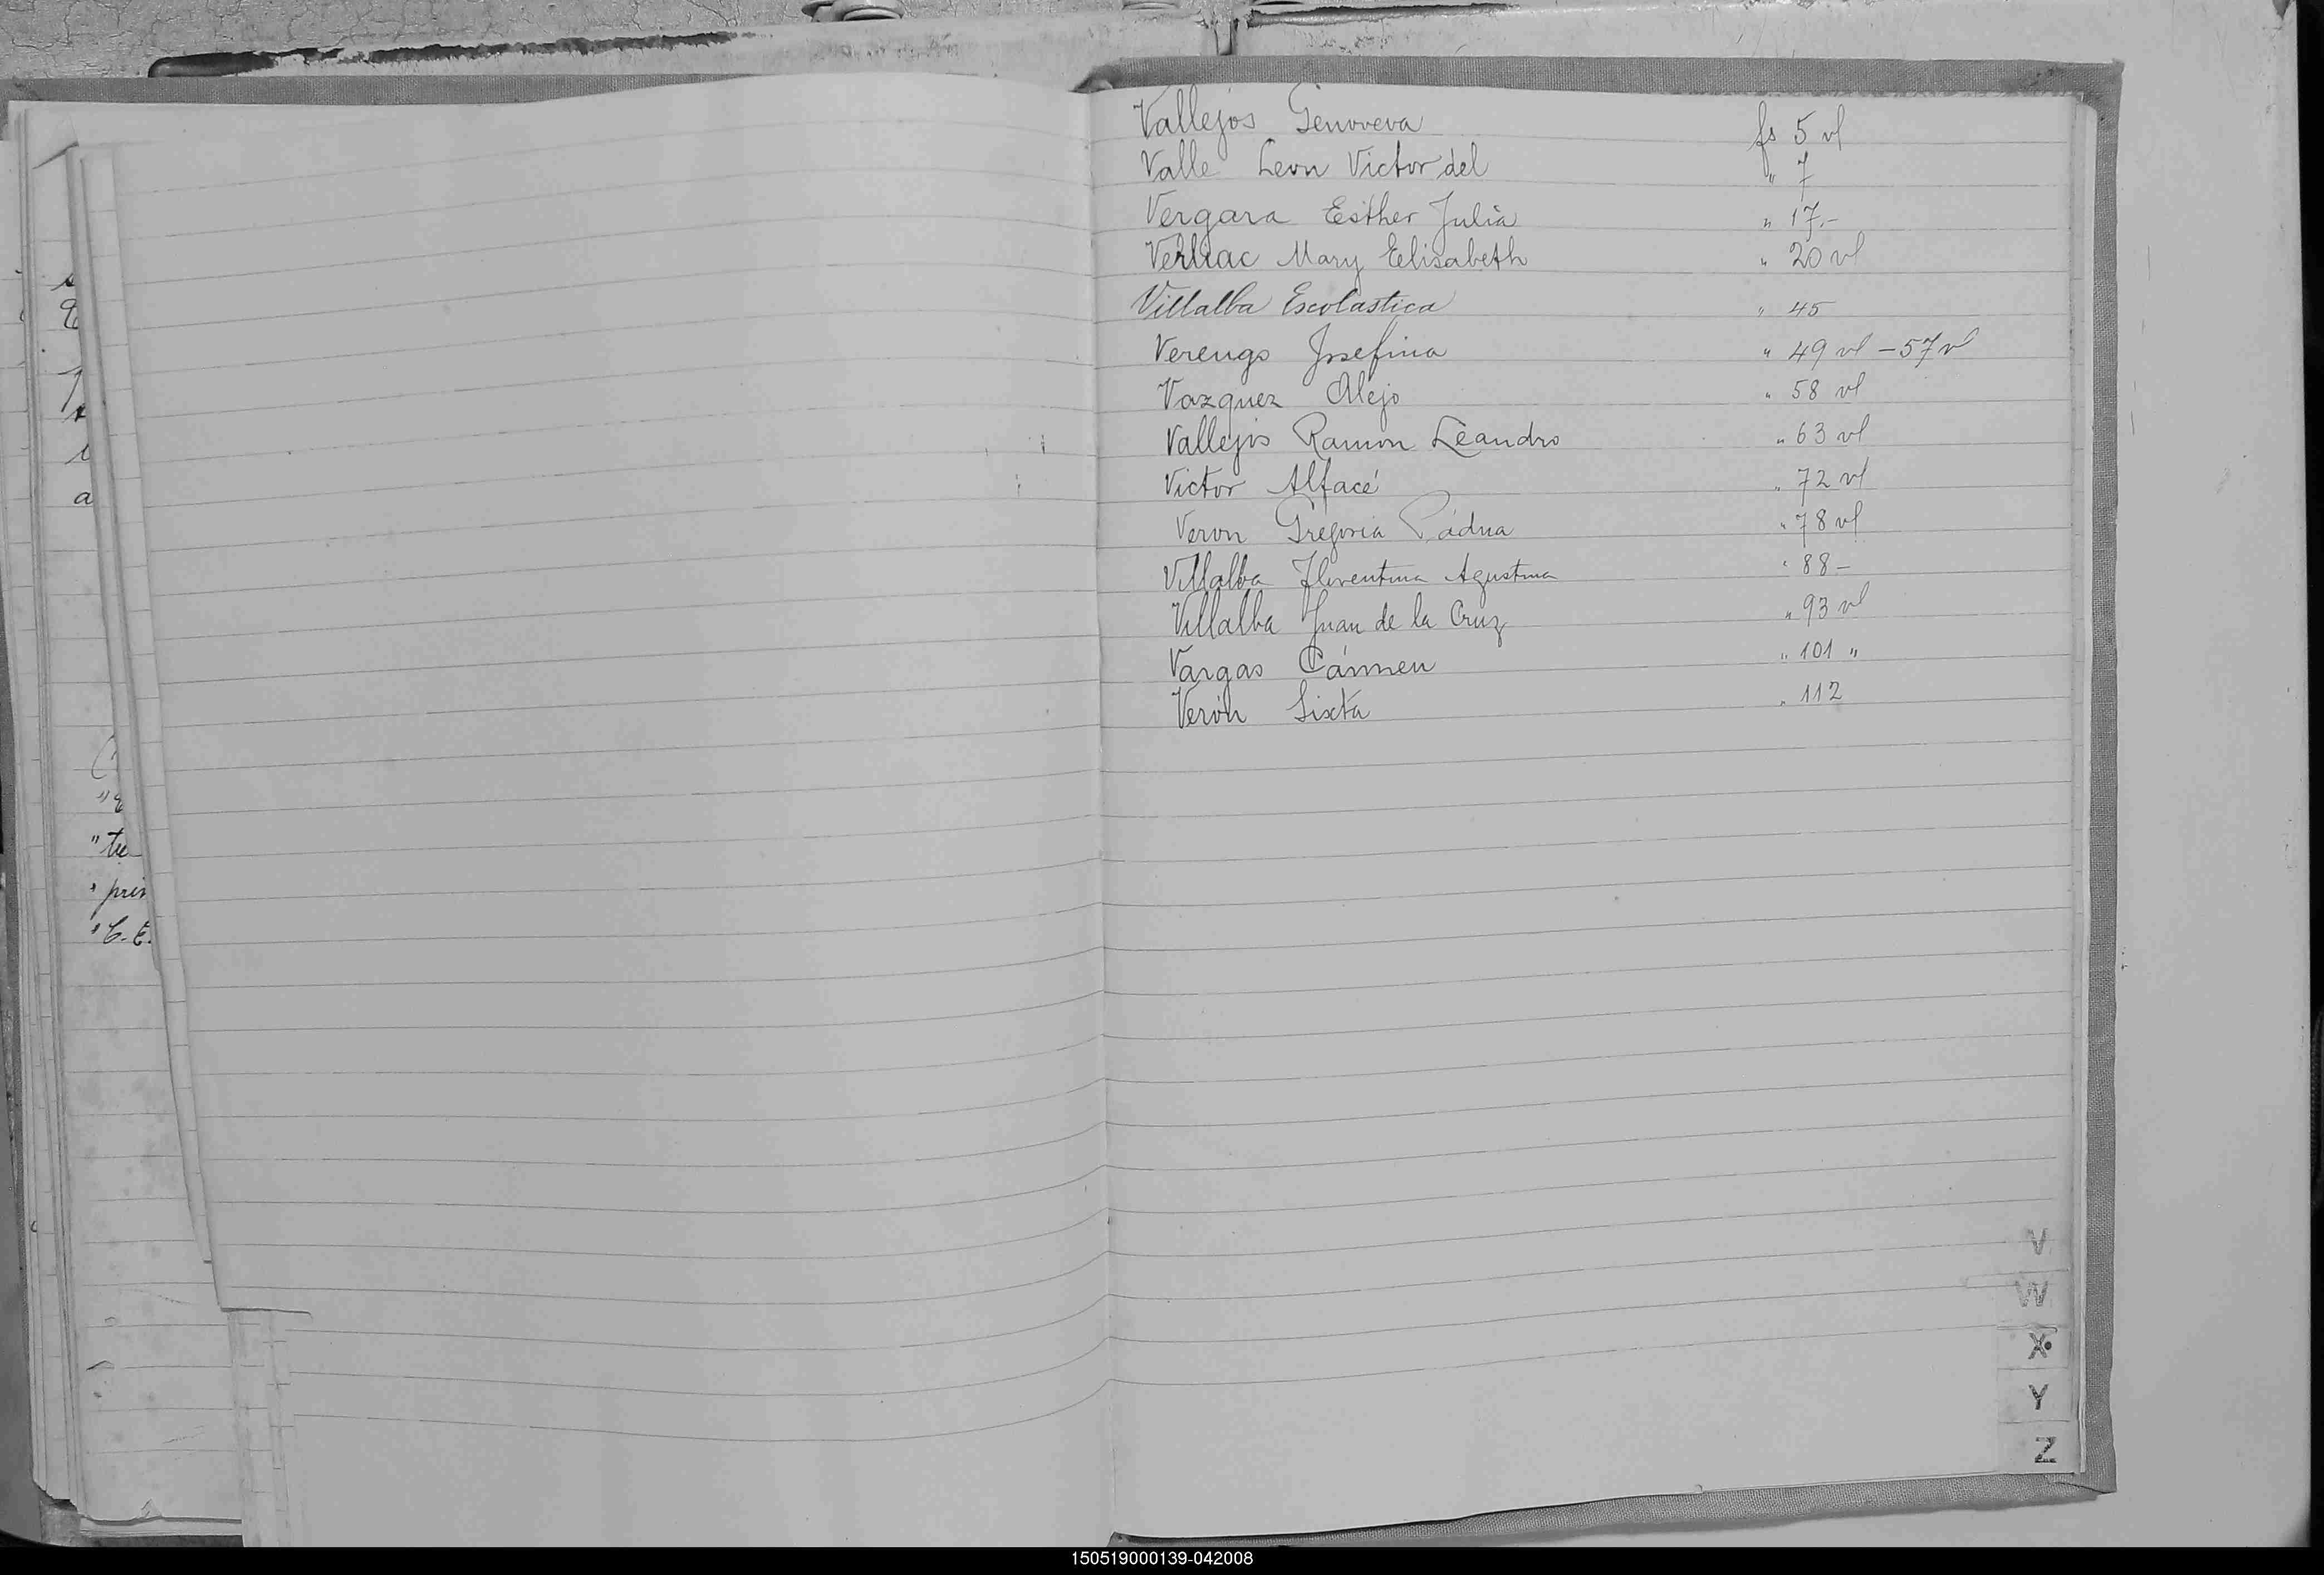 Vallejos Genoveva fs 5 vl
Valle Leon Victor del " 7
Vergara Esther Julia " 17.-
Verliac Mary Elisabeth " 20 vl
Villalba Escolastica " 45
Verengo Josefina " 49 vl - 57 vl
Vazquez Alejo " 58 vl
Vallejos Ramon Leandro " 63 vl
Victor Alfacé " 72 vl
Veron Gregoria Pádua " 78 vl
Villalba Florentina Agustina " 88 -
Villalba Juan de la Cruz " 93 vl
Vargas Cármen " 101 "
Verón Sixta " 112
a
" tu
" pri
" C. E.
V
W
X
Y
Z
150519000139-042008